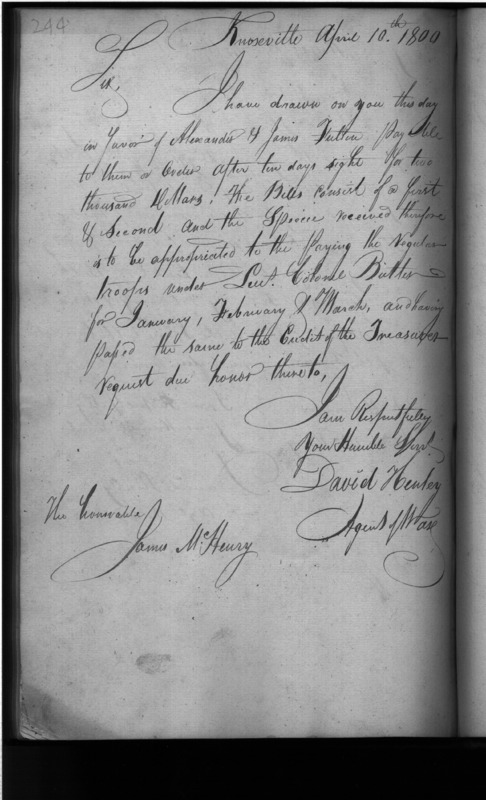 244
Knoxville April 10.th 1800
Sir,
I have drawn on you this day
in favor of Alexander & James Payable
to them or Order after ten days sight for two
thousand Dollars. The Bills consist of a first
& Second and the Specie received therefore
is to be appropriated to the Paying the Regular
troops under Lieut. Colonel Butler
for January, February & March, and having
passed the same to the Credit of the Treasurer
request due honor thereto,
I am Respectfully
Your Humble Servt
David Henley
Agent of War
The Honorable
James McHenry